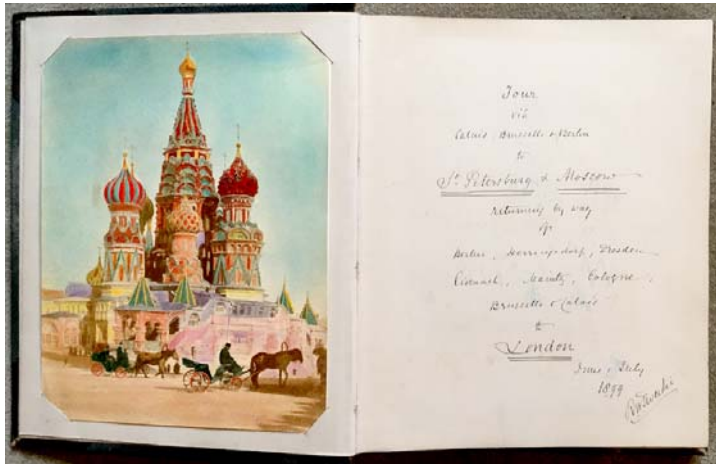 Tour
via
Calais Brussells & Berlin
to
St Petersburg & Moscow
returning by way
of
Berlin, Herringsdorf, Dresden
Eisenach, Maintz, Cologne,
Brussells & Calais
to
London
June & July
1899